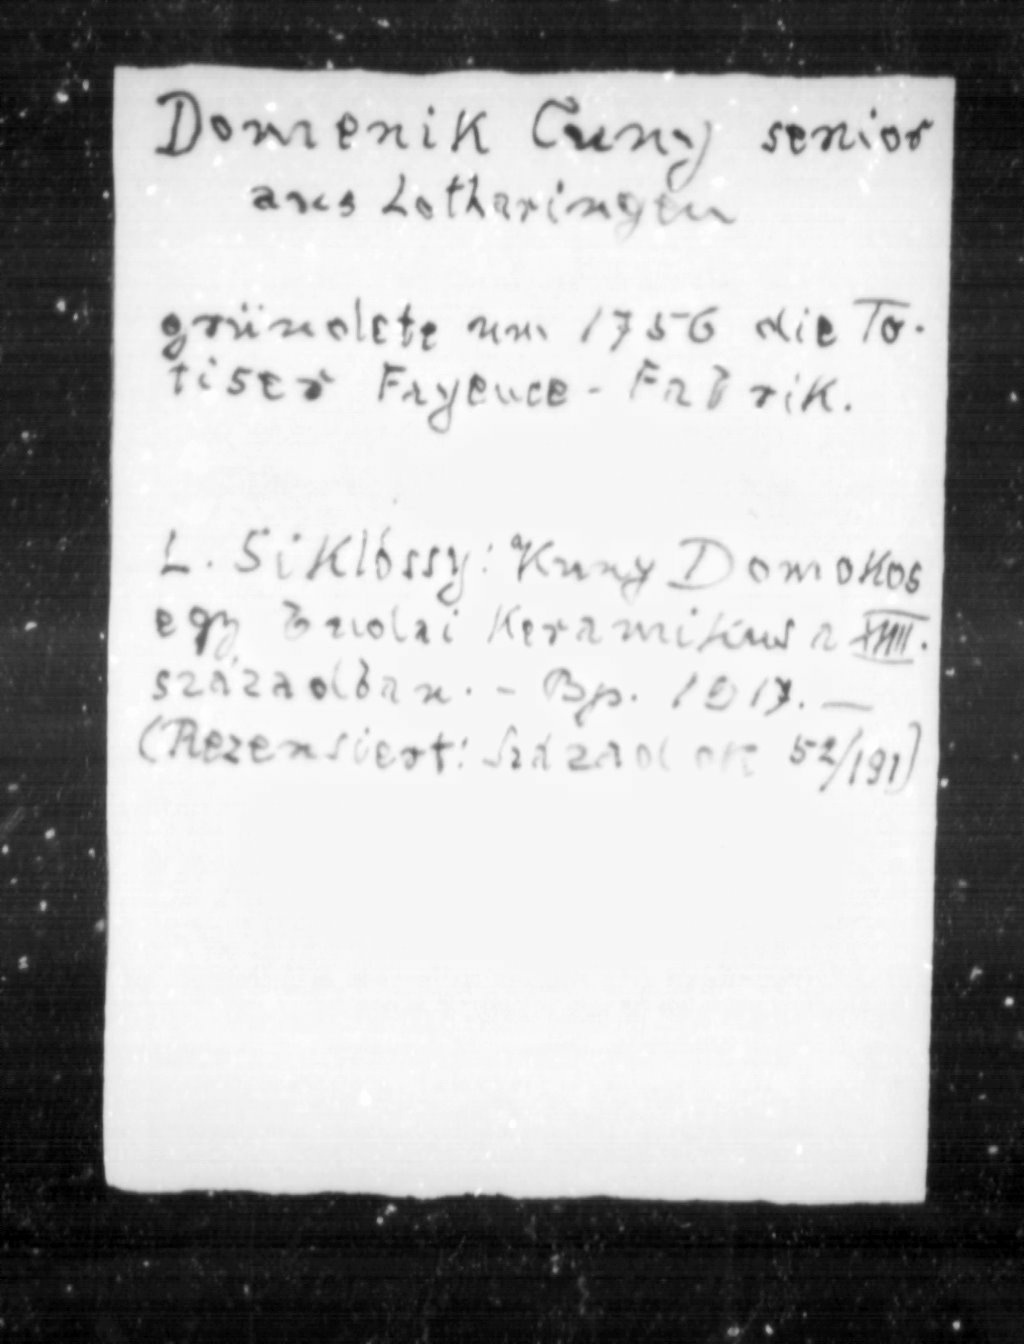 Domenik Cuny senior
aus Lotharingen
gründete um 1756 die To-
tiser Fayence-Fabrik.
L. Siklóssy: Kuny Domokos
egy budai Keramikus a XVIII.
században. - Bp. 1917. —
(Rezensiert: Századok 52/191)